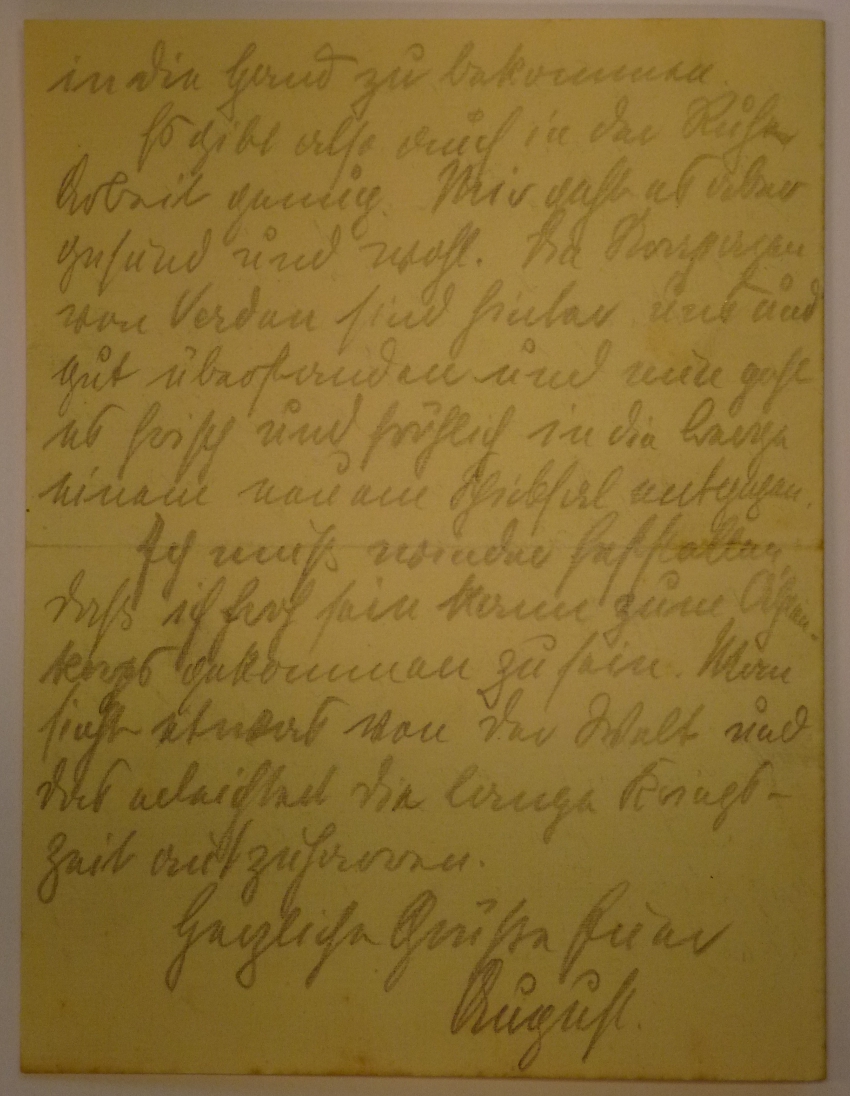 in die Hand zu bekommen.
Es gibt also auch in der Ruhe
Arbeit genug. Mir geht es aber
gesund und wohl. Die Strapazen
von Verdun sind hinter uns und
gut überstanden und nun geht
es frisch und fröhlich in die Berge
einem neuen Schicksal entgegen.
Ich muß wieder feststellen,
daß ich froh sein kann zum Alpen-
korps gekommen zu sein. Man
sieht etwas von der Welt und
das erleichtert die lange Kriegs-
zeit auszuharren.
Herzliche Grüße Euer
August.